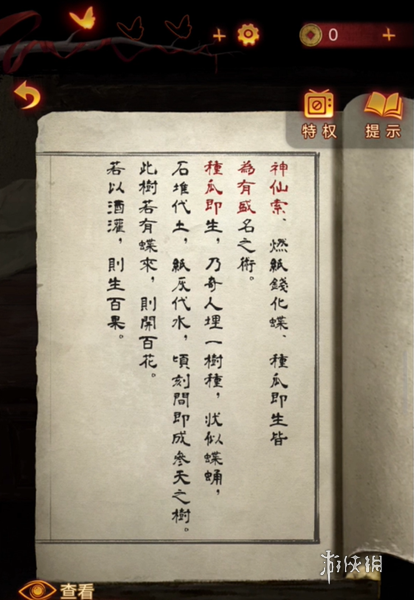 0
特权
提示
神仙索、燃紙錢化蝶、種瓜即生皆
為有盛名之術。
種瓜即生，乃奇人埋一樹種，狀似蝶蛹，
石堆代土，紙灰代水，頃刻間即成參天之樹。
此樹若有蝶來，則開百花。
若以酒灌，則生百果。
查看
游侠網